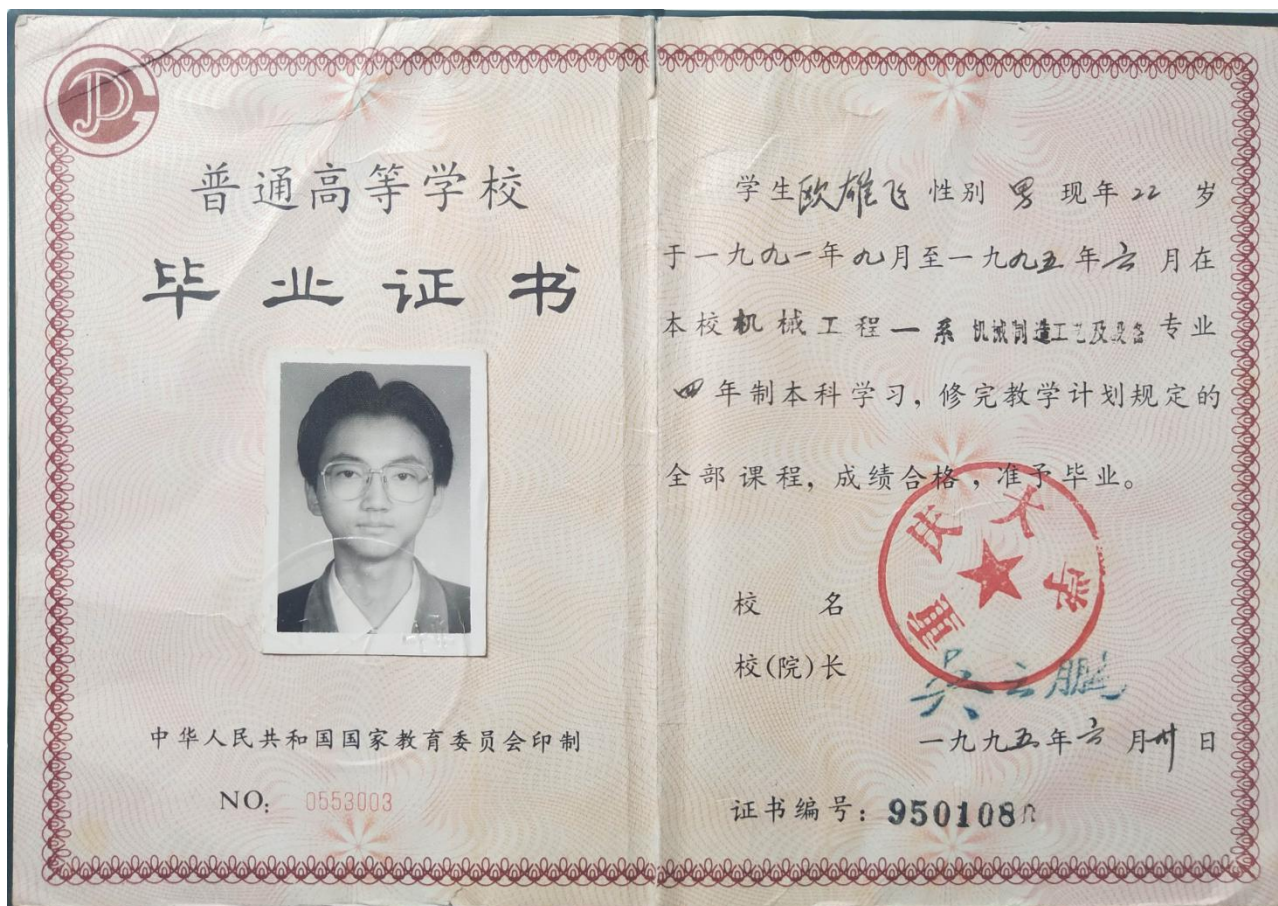 普通高等学校
毕业证书
中华人民共和国国家教育委员会印制
NO: 0553003
学生欧雄飞性别 男 现年 22 岁
于一九九一年九月至一九九五年六月在
本校机械工程一系 机械制造工艺及设备 专业
四年制本科学习，修完教学计划规定的
全部课程，成绩合格，准予毕业。
重庆大学
校 名
校(院)长 吴云鹏
一九九五年六月卅日
证书编号：950108